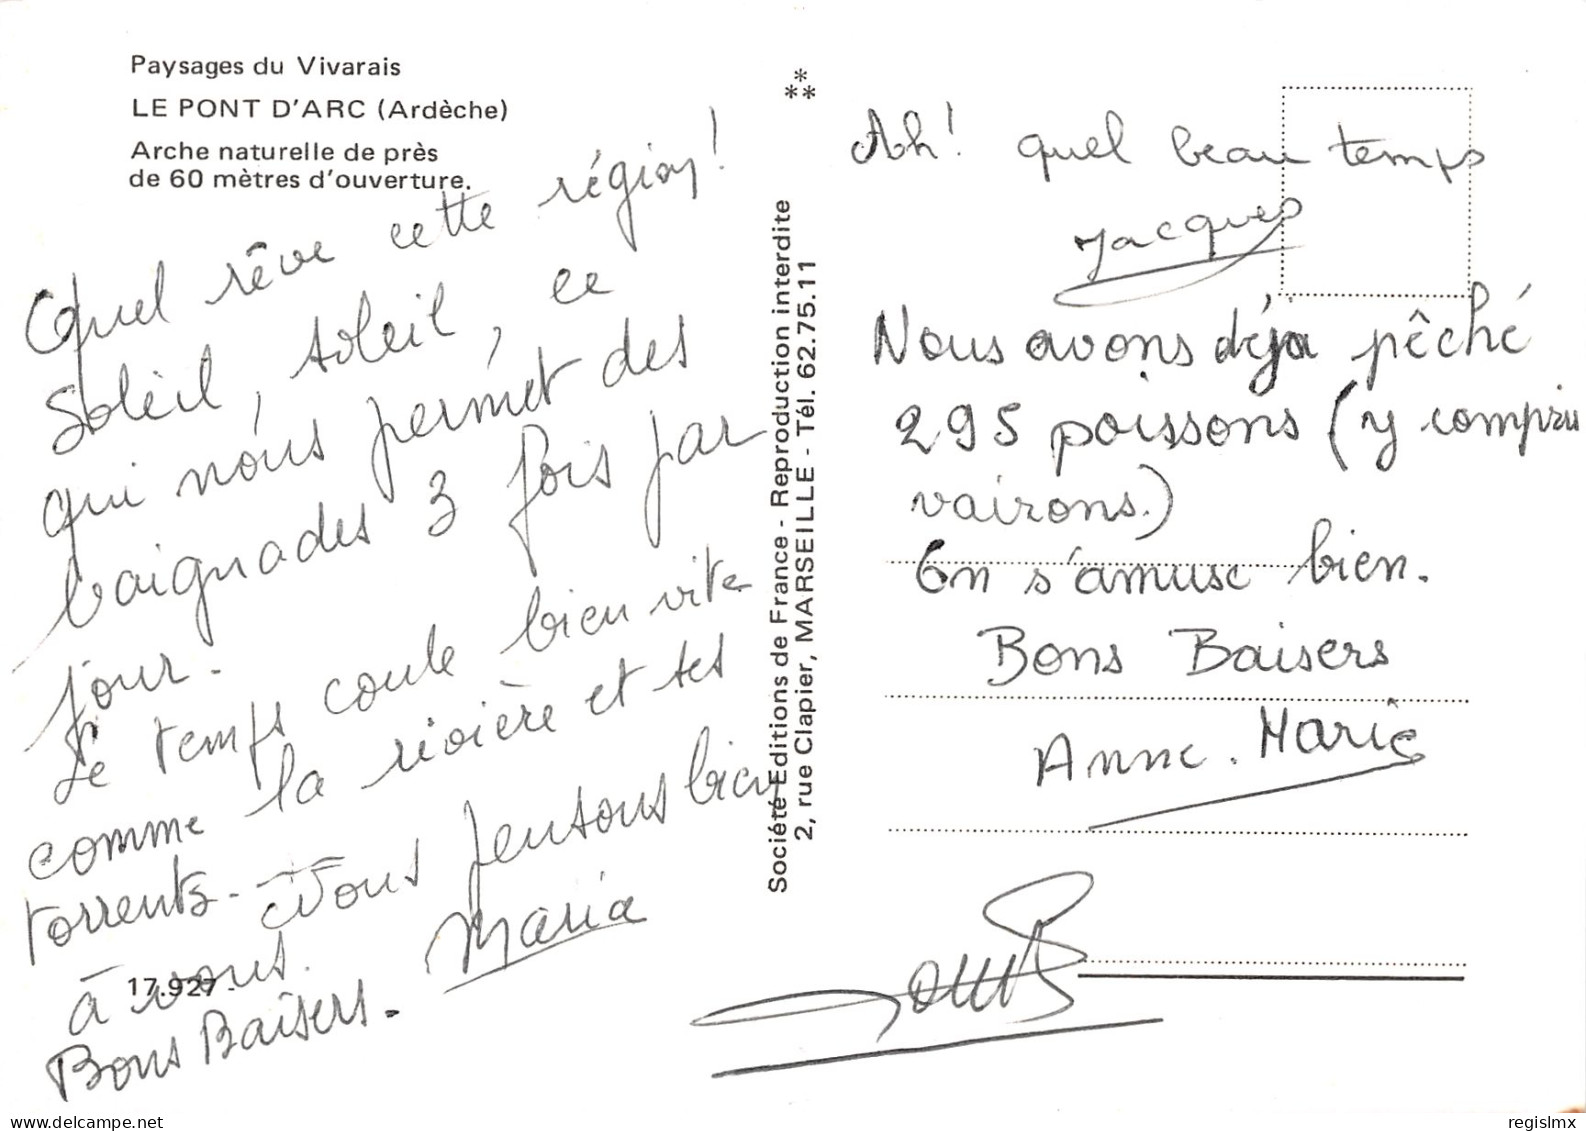 Paysages du Vivarais
LE PONT D'ARC (Ardèche)
Arche naturelle de près
de 60 mètres d'ouverture.
Quel rêve cette région!
Soleil, soleil, ce
qui nous permet des
baignades 3 fois par
jour.
Le temps coule bien vite
comme la rivière et ses
torrents. Nous pensons bien
à vous.
Bons Baisers.
Maria
17.927
Société Editions de France - Reproduction interdite
2, rue Clapier, MARSEILLE - Tél. 62.75.11
Ah! quel beau temps
Jacques
Nous avons déja pêché
295 poissons (y compris
vairons.)
On s'amuse bien.
Bons Baisers
Anne. Marie
regislmx